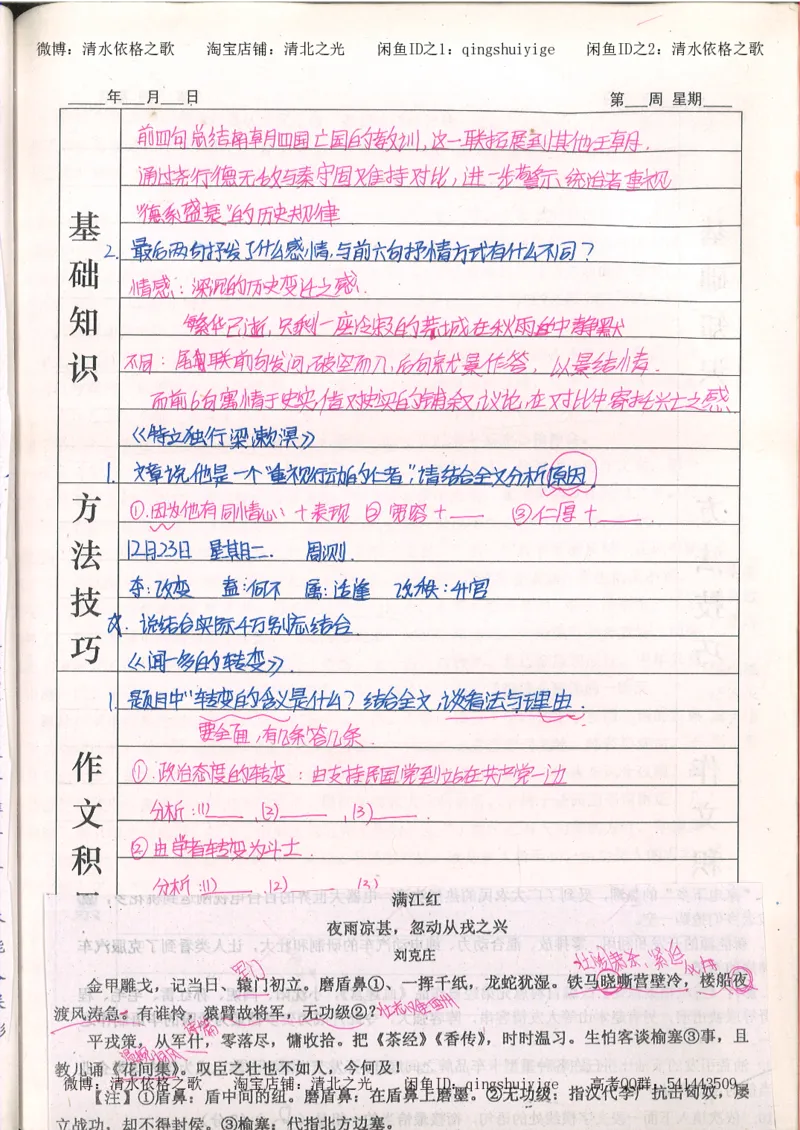 微博：清水依格之歌 淘宝店铺：清北之光 闲鱼ID之1：qingshuiyige 闲鱼ID之2：清水依格之歌
年 月 日 第 周 星期
前四句总结南朝四国亡国的教训，这一联拓展到其他王朝.
通过尧行德无敌与秦守国难持对比，进一步警示统治者重视
"德系盛衰"的历史规律
基础知识
2. 最后两句抒发了什么感情，与前六句抒情方式有什么不同？
情感：深沉的历史变迁之感.
繁华已逝，只剩一座冷寂的荒城在秋雨中静默
不同：尾联前句发问，破空而入，后句求景作答，以景结情.
而前6句寓情于史实，借对史实的铺叙议论，在对比中寄托兴亡之感
《特立独行梁漱溟》
1. 文章说他是一个"重视行动的仁者"，请结合全文分析原因.
方法技巧
①.因为他有同情心 + 表现 ② 宽容 + ③仁厚 +
12月23日 星期二. 周测.
夺：改变 盍：何不 属：适逢
. 说结合实际千万别忘结合.
《闻一多的转变》.
1. 题目中"转变"的含义是什么？结合全文，谈看法与理由.
要全面，有几条答几条.
作文积
①.政治态度的转变：由支持民国党到站在共产党一边
分析：(1) ,(2) ,(3) .
② 由学者转变为斗士.
分析：(1) ,(2) (3)
满江红
夜雨凉甚，忽动从戎之兴
刘克庄
壮阔萧索 紧迫
军门
金甲雕戈，记当日、辕门初立。磨盾鼻①、一挥千纸，龙蛇犹湿。铁马晓嘶营壁冷，楼船夜
渡风涛急。有谁怜，猿臂故将军，无功级②？
平戎策，从军什，零落尽，慵收拾。把《茶经》《香传》，时时温习。生怕客谈榆塞③事，且
教儿诵《花间集》。叹臣之壮也不如人，今何及！
微博：清水依格之歌 淘宝店铺：清北之光 闲鱼ID：qingshuiyige 高考QQ群：541443509
【注】①盾鼻：盾中间的纽。磨盾鼻：在盾鼻上磨墨。②无功级：指汉代李广抗击匈奴，屡
立战功，却不得封侯。③榆塞：代指北方边塞。